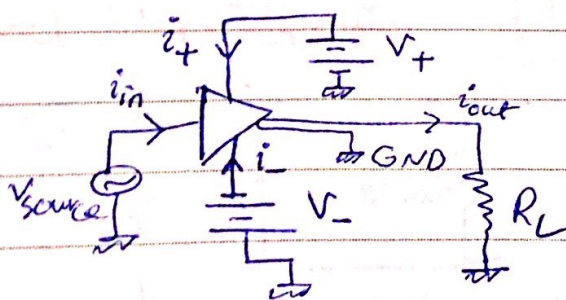 i+
V+
i in
i out
i-
GND
V source
V-
R L